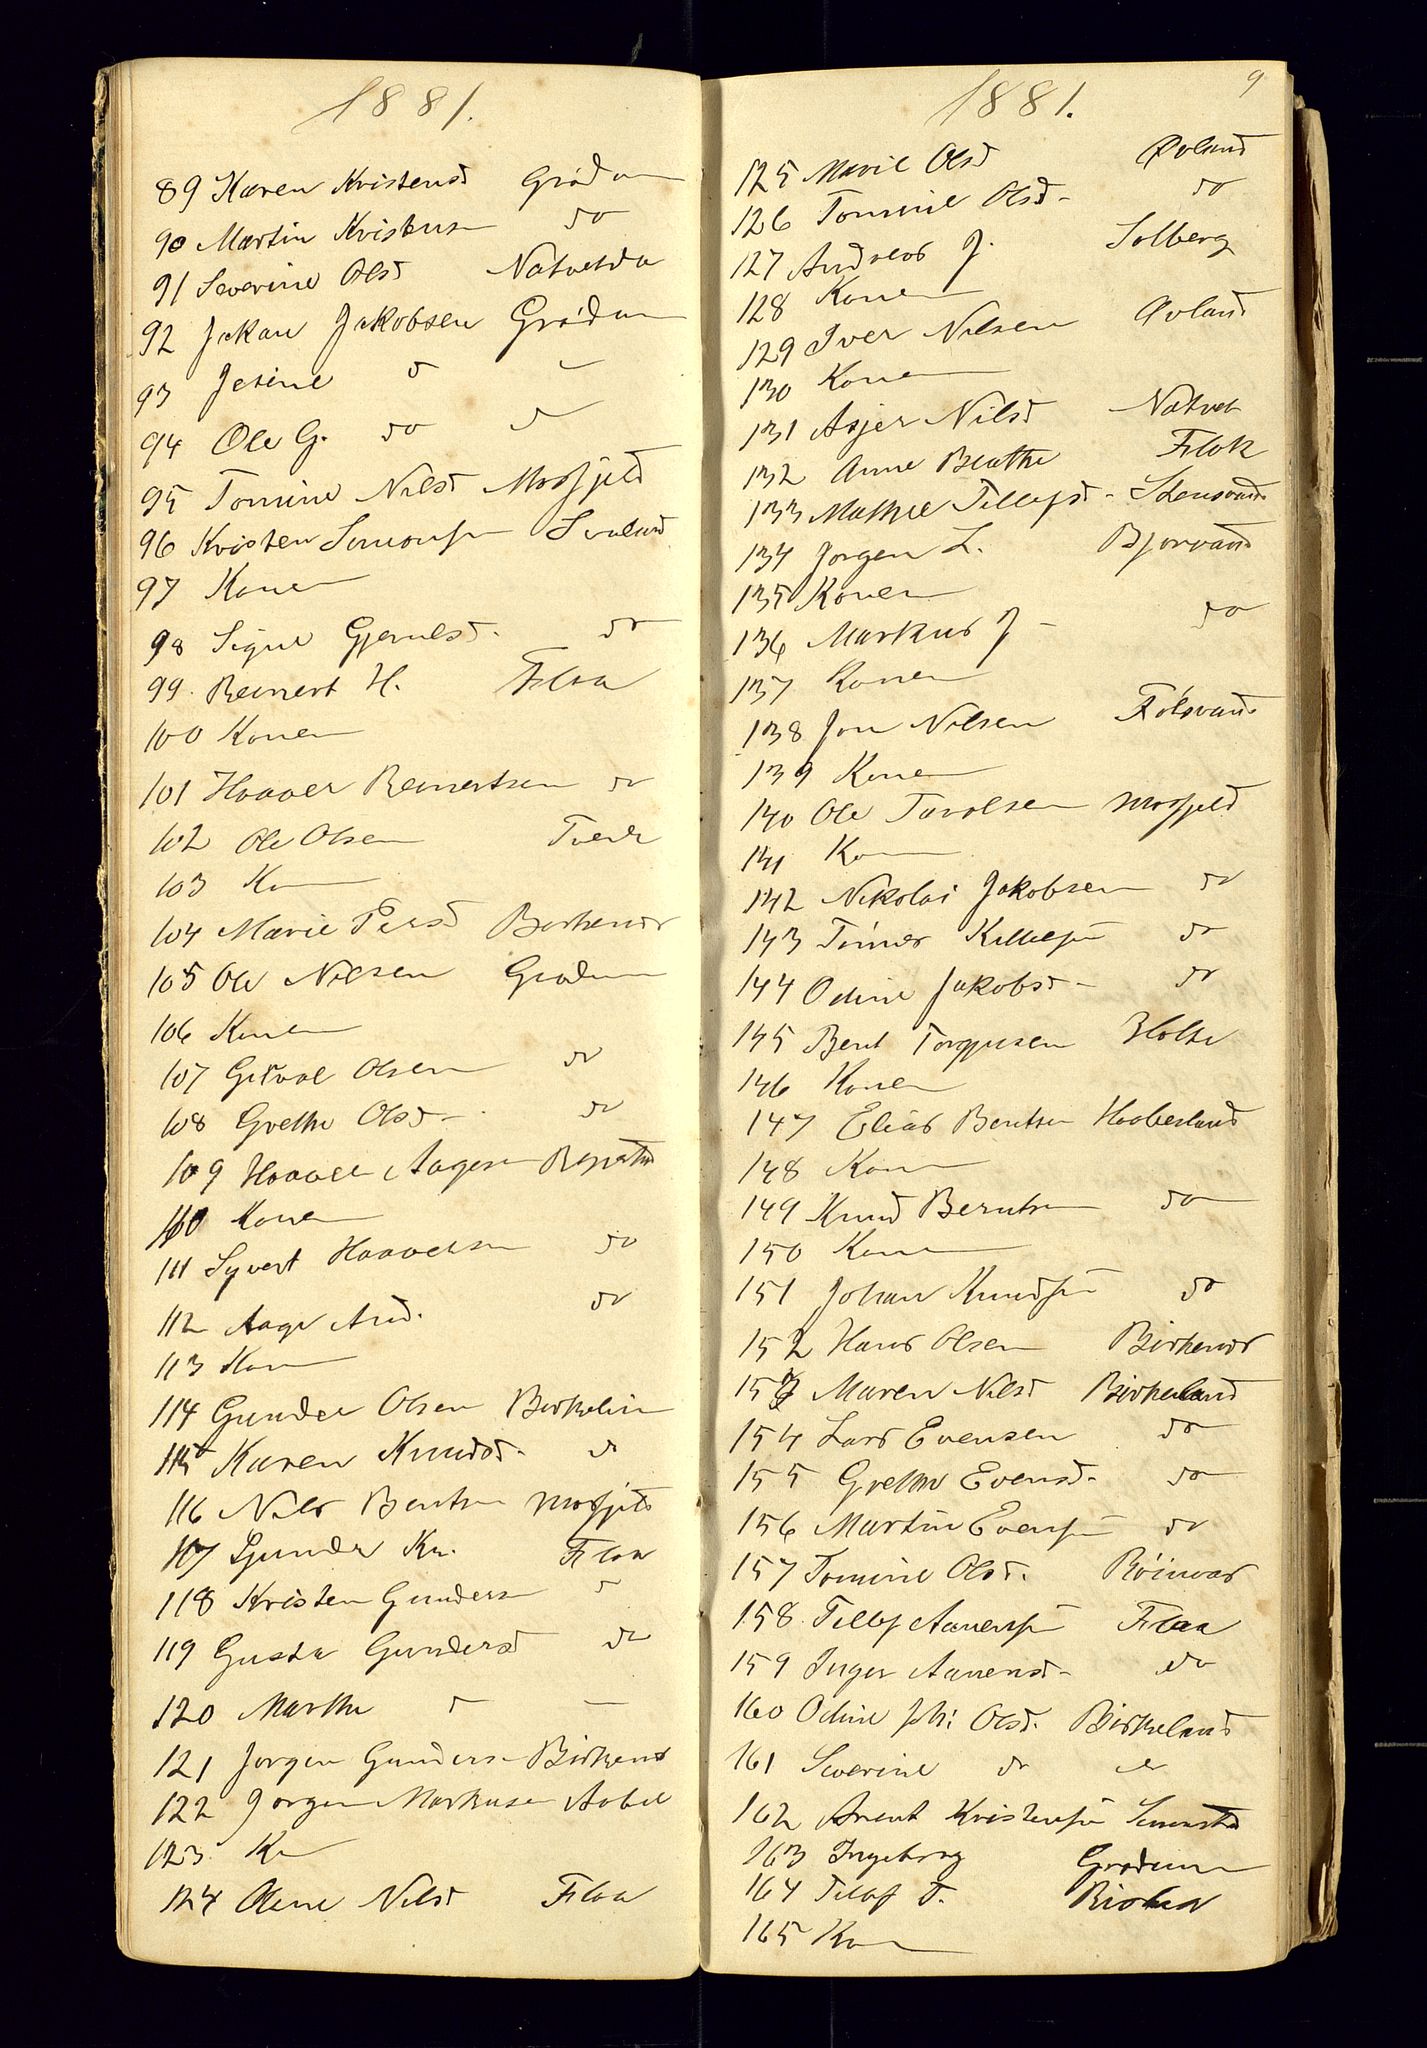 1881.
89 Karen Kristensd Grødum
90 Martin Kristensen do
91 Severine Olsd Natvetda
92 Jakan Jakobsen Grødum
93 Jesine d
94 Ole G. do d
95 Tomine Nilsd Mosfjeld
96 Kristen Simonsen
97 Konen
98 Signe Gjerulsd. do
99. Reinert H. Flaa
100 Konen
101 Haaver Reinertsen do
102 Ole Olsen Tvede
103 Kon
104 Marie Persd Birkenes
105 Ole Nilsen Grødum
106 Konen
107 Gitval Olsen do
108 Grethe Olsd - do
109 Haavel Aagesen
110 Konen
111 Syvert Haavelsen do
112 Aage And. do
113 Kon
114 Gunder Olsen Birkelien
115 Karen Knudsd. do
116 Nils Bentsen Mosfjeld
117 Gunder Kn. Flaa
118 Kristen Gundersen d
119 Gusta Gundersd do
120 Marthe d –
121 Jorgen Gundersen Birkenes
122 Jorgen Markusen Aabel
123 Kn
124 Olene Nilsd Flaa
1881. 9
125 Marie Olsd Øvland
126 Tomine Olsd - do
127 Andreas J. Solberg
128 Konen
129 Iver Nilsen Øvland
130 Konen
131 Asjer Nilsd Natvet
132 Anne Beathe Flak
133 Mathie Tellefsd - Stensvand
134 Jorgen L. Bjorvand
135 Konen
136 Markus J - do
137 Konen
138 Jon Nilsen Følsvand
139 Konen
140 Ole Tarolsen Mosfjeld
141 Kon
142 Nikolai Jakobsen do
143 Tönnes Killefsen do
144 Odine Jakobsd - do
145 Berut Torgjusen Holte
146 Konen
147 Elias Bentsen Haaberland
148 Kon
149 Knud Berntsen do
150 Kon
151 Johan Knudsen do
152 Hans Olsen Birkenes
153 Maren Nilsd Birkeland
154 Lars Evensen do
155 Grethe Evensd. do
156 Martin Evensen do
157 Tomine Olsd. Röinaas
158 Tellef Aanensen Flaa
159 Inger Aanensd - do
160 Odine Joh: Olsd. Birkeland
161 Severine do do
162 Arent Kristensen Senumstad
163 Ingeborg Grødum
164 Tellef T.
165 Kon